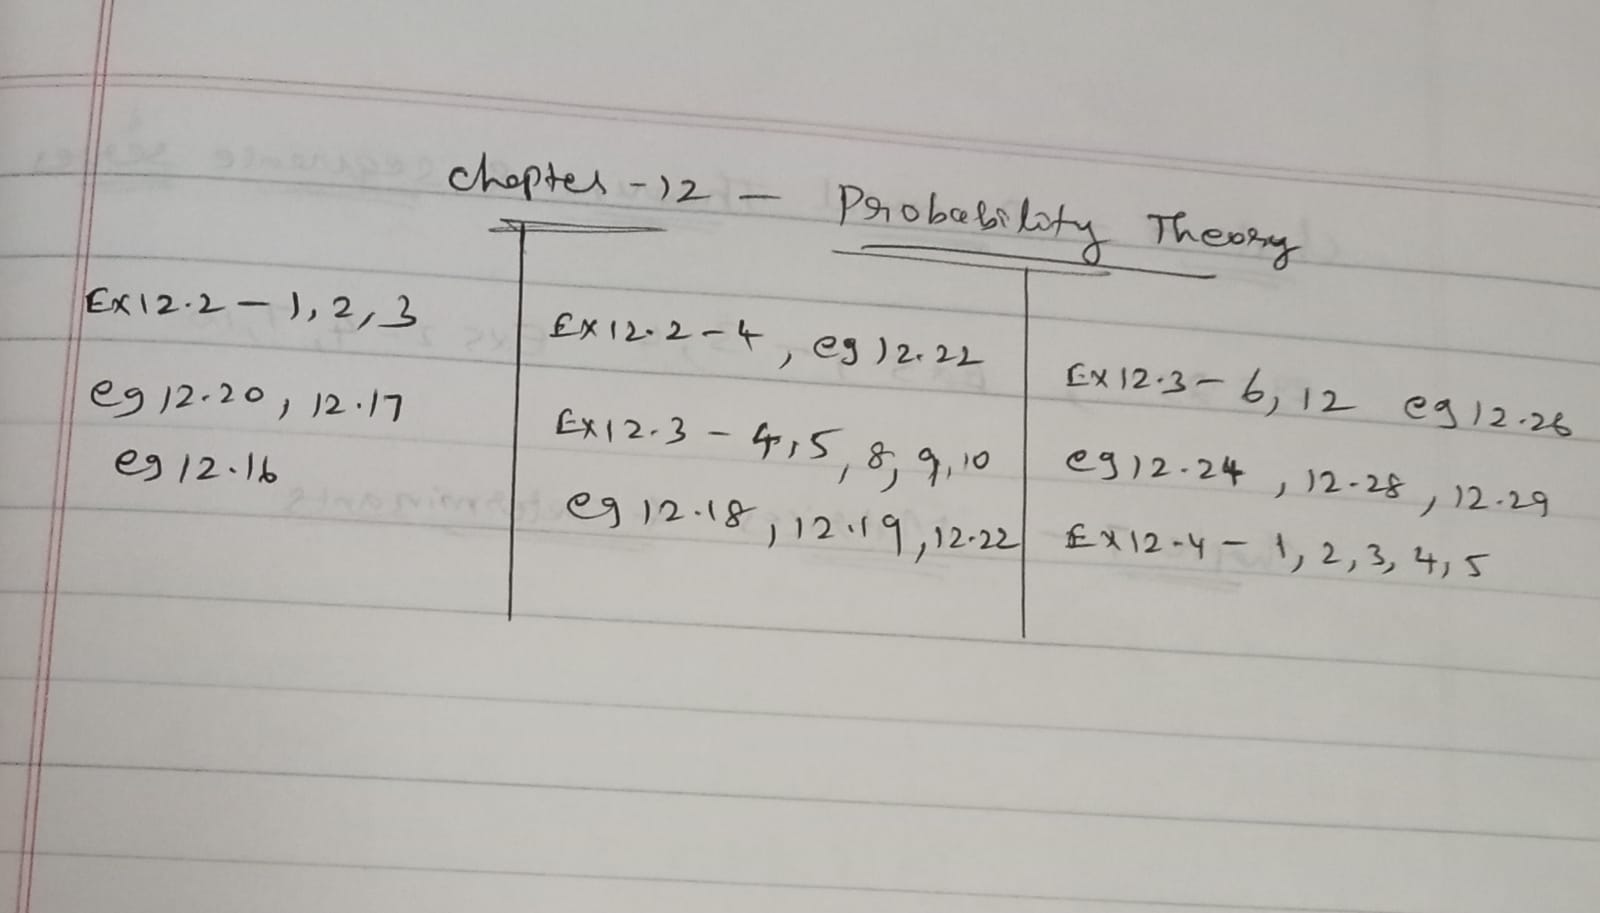 Chapter - 12 - Probability Theory
Ex 12.2 - 1, 2, 3
eg 12.20, 12.17
eg 12.16
Ex 12.2 - 4, eg 12.22
Ex 12.3 - 4, 5, 8, 9, 10
eg 12.18, 12.19, 12.22
Ex 12.3 - 6, 12 eg 12.26
eg 12.24, 12.28, 12.29
Ex 12.4 - 1, 2, 3, 4, 5